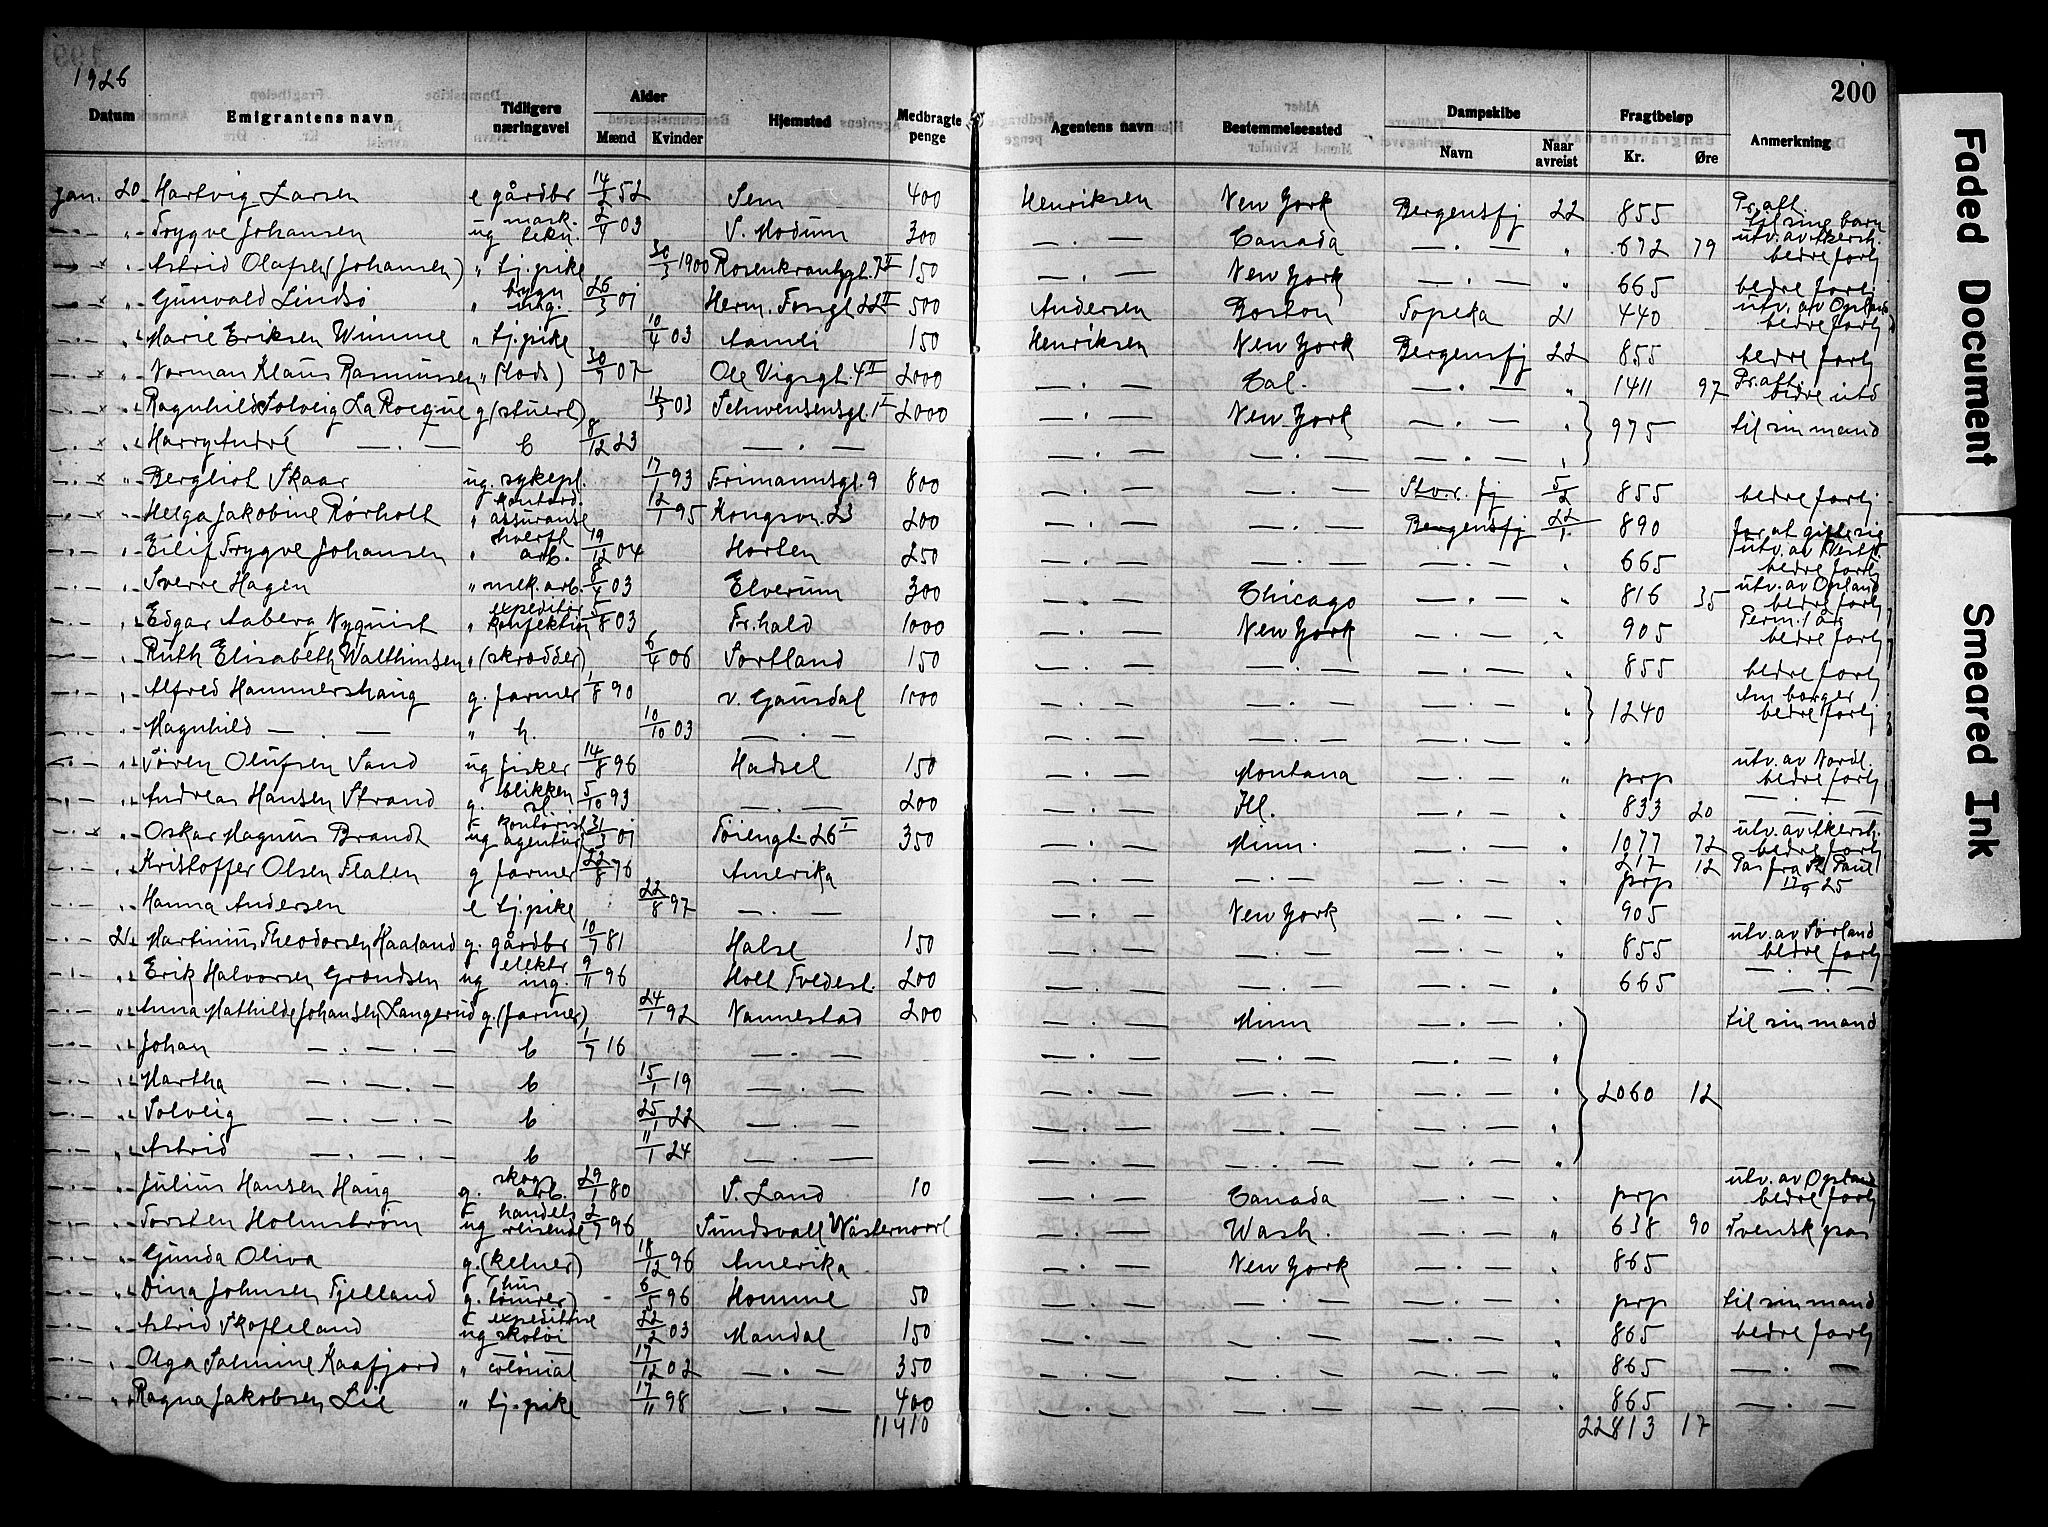 200
1926
Datum Emigrantens navn Tidligere næringsvei Alder Mænd Kvinder Hjemsted Medbragte penge Agentens navn Bestemmelsessted Dampskibe Navn Naar avreist Fragtbeløp Kr. Øre Anmerkning
Jan. 20 Hartvig Larsen e gårdbr 14/2 52 Sem 400 Henriksen New York Bergensfj 22 855 Pr. aft. til sine barn
" Trygve Johansen ug mask. tekn. 2/9 03 S. Modum 300 — . — Canada — . — " 672 79 utv. av Akersh. bedre forhj
x " Astrid Olafsen (Johansen) " tj.pike 30/3 1900 Rosenkrantzgt. 7 II 150 — . — New York — . — " 665 bedre forhj
x " Gunvald Lindsö " bygn ing. 26/3 01 Herm. Fossgt 22 II 500 Andersen Boston Topeka 21 440 utv. av Opland bedre forhj
" Marie Eriksen Wimme " tj.pike 10/4 03 Aamli 150 Henriksen New York Bergensfj 22 855 bedre forhj
x " Norman Klaus Rasmussen " (lods) 30/9 07 Ole Vigsgt. 4 II 2000 — . — Cal. — . — " 1411 97 Pr. aft. bedre utd
x " Ragnhild Solveig La Rocque g (stuert) 12/3 03 Schwensensgt. 1 I 2000 — . — New York — . — " 975 til sin mand
x " Harry André — . — b 8/12 23 — . — — . — — . — — . — "
x " Bergliot Skaar ug. sykepl. 17/1 93 Frimannsgt. 9 800 — . — — . — Stvr. fj 5/2 855 bedre forhj
x " Helga Jakobine Rørholt " kontord. assuranse 12/1 95 Kongsvn. 23 200 — . — — . — Bergensfj 22/1 890 for at gifte sig
" Eilif Trygve Johansen " hverft arb. 19/12 04 Horten 250 — . — — . — — . — " 665 utv. av Vestf. bedre forhj
" Sverre Hagen " mek. arb. 8/4 03 Elverum 300 — . — Chicago — . — " 816 35 utv. av Opland bedre forhj
" Edgar Aaberg Nyquist " expeditør konfektion 5/8 03 Fr.hald 1000 — . — New York — . — " 905 Perm. 1 år bedre forhj
" Ruth Elisabeth Walthinsen " (skrædder) 6/4 06 Sortland 150 — . — — . — — . — " 855 bedre forhj
" Alfred Hammershaug g. farmer 1/8 90 v. Gausdal 1000 — . — — . — — . — " 1240 Am borger bedre forhj
" Magnhild — . — " h. 10/10 03 — . — — . — — . — — . — "
" Sören Olufsen Sand ug fisker 14/8 96 Hadsel 150 — . — Montana — . — " prp utv. av Nordl. bedre forhj
" Andreas Hansen Strand g. blikken sl. 5/10 93 — . — 200 — . — Ill. — . — " 833 20 — . —
x " Oskar Magnus Brandt ug kontorist agentur 31/3 01 Töiengt. 26 I 350 — . — Minn. — . — " 1077 72 utv. av Akersh. bedre forhj
" Kristoffer Olsen Flaten g farmer 22/8 76 Amerika — . — — . — — . — " 217 12 prp Pas fra St Paul 17/9 25
" Hanna Andersen e tj.pike 22/8 97 — . — — . — New York — . — " 905
21 Martinius Theodorsen Haaland g. gårdbr 10/7 81 Halse 150 — . — — . — — . — " 855 utv. av Sørland bedre forhj
" Erik Halvorsen Gröndsen ug elektr ing. 9/11 96 Holt Tvedest. 200 — . — — . — — . — " 665 — . —
" Anna Mathilde Johansen Langerud g. (farmer) 24/1 92 Nannestad 200 — . — Minn — . — " til sin mand
" Johan — . — . — b 1/7 16 — . — — . — — . — — . — "
" Martha — . — . — b 15/1 19 — . — — . — — . — — . — " 2060 12
" Solveig — . — . — b 25/1 22 — . — — . — — . — — . — "
" Astrid — . — . — b 11/1 24 — . — — . — — . — — . — "
" Julius Hansen Haug g. skogs arb. 29/1 80 S. Land 10 — . — Canada — . — " prp utv. av Opland bedre forhj
" Torsten Holmström ug handels reisende 2/7 96 Sundsvall Wästernorrl — . — Wash. — . — " 638 90 Svensk pas
" Gunda Oliva g. (kelner) 18/12 96 Amerika — . — New York — . — " 865
" Dina Johnsen Fjelland g. (hus tömrer) 6/5 96 Homme 50 — . — — . — — . — " prp til sin mand
" Astrid Skofteland ug expeditrise skotöi 22/2 03 Mandal 150 — . — — . — — . — " 865 bedre forhj
" Olga Salmine Kaafjord " colonial 17/12 02 — . — 350 — . — — . — — . — " 865 — . —
" Ragna Jakobsen Lie " tj.pike 17/11 98 — . — 400 — . — — . — — . — " 865 — . —
11410 22813 17
Faded Document
Smeared Ink